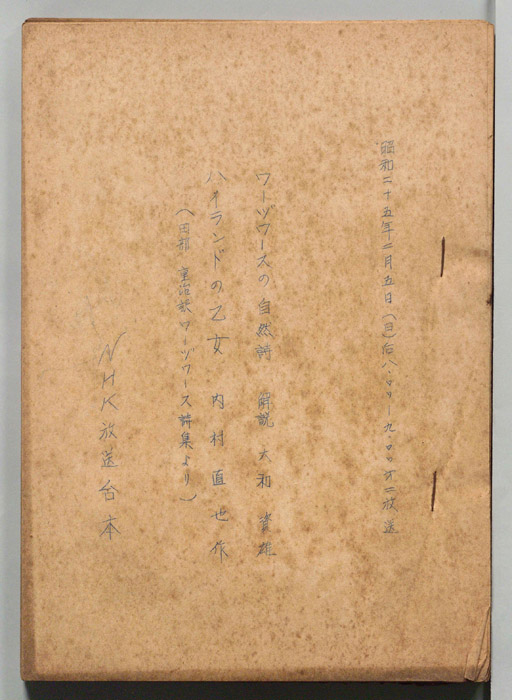 昭和二十五年二月五日(日)后八・〇〇ー九・〇〇 第二放送
ワーヅワースの自然詩 解説 大和資雄
ハイランドの乙女 内村直也作
(田部重治訳ワーヅワース詩集より)
NHK放送台本